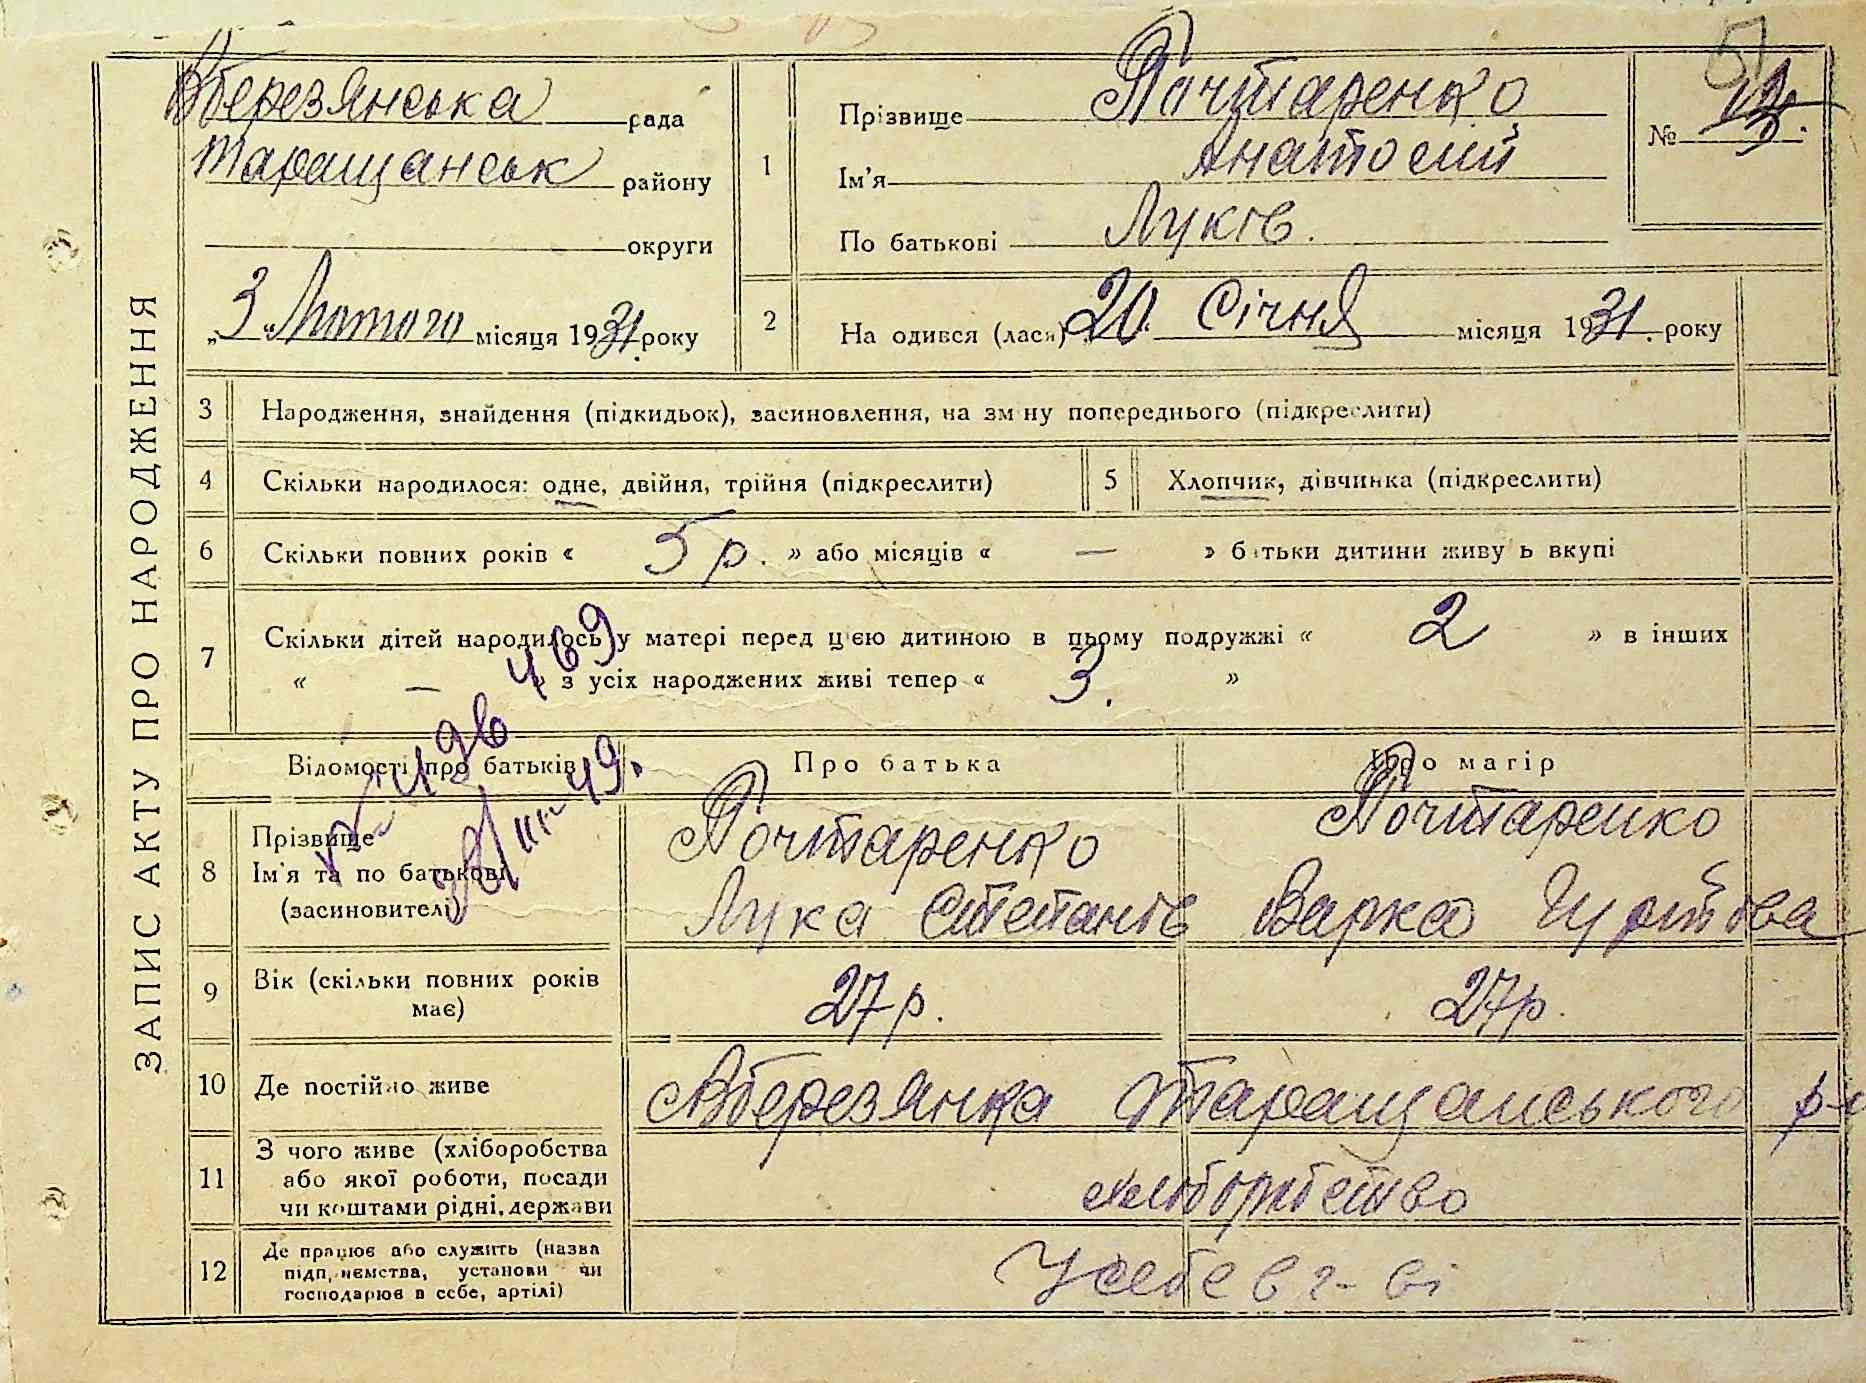 ЗАПИС АКТУ ПРО НАРОДЖЕННЯ
Вберезянська рада
Таращанськ району
округи
„3" Лютого місяця 1931 року
1
Прізвище Почтаренко
Ім'я Анатолій
По батькові Луків.
№ 13.
51
2 На одився (лася) 20. Січня місяця 1931. року
3 Народження, знайдення (підкидьок), засиновлення, на зм ну попереднього (підкреслити)
4 Скільки народилося: одне, двійня, трійня (підкреслити)
5 Хлопчик, дівчинка (підкреслити)
6 Скільки повних років « 5 р. » або місяців « — » б тьки дитини живу ь вкупі
7 Скільки дітей народилось у матері перед цією дитиною в цьому подружжі « 2 » в інших
« — » з усіх народжених живі тепер « 3. »
Відомості про батьків Про батька Про матір
8 Прізвище Почтаренко Почтаренко
Ім'я та по батькові Лука Степанів Варка
(засиновителі)
9 Вік (скільки повних років має) 27 р. 27 р.
10 Де постійно живе Вберезянка Таращанського р-н
11 З чого живе (хліборобства
або якої роботи, посади
чи коштами рідні, держави
12 Де працює або служить (назва
підп, иємства, установи чи
господарює в себе, артілі)
У себе в г-ві